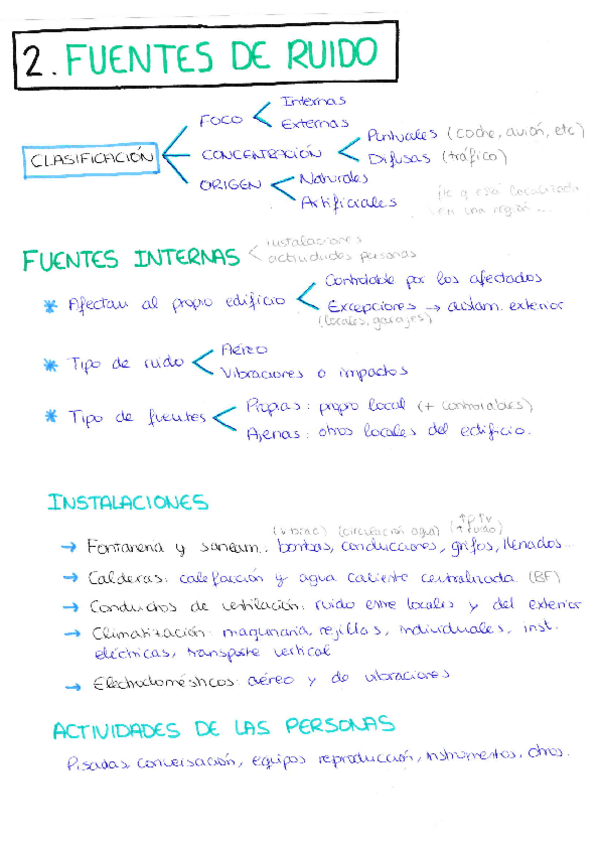 2. FUENTES DE RUIDO
CLASIFICACIÓN
FOCO
Internas
Externas
CONCENTRACIÓN
Puntuales (coche, avión, etc)
Difusas (tráfico)
ORIGEN
Naturales
Artificiales
localizada
en una región ...
FUENTES INTERNAS
instalaciones
actividades personas
* Afectan al propio edificio
Controlable por los afectados
Excepciones → dictam. exterior
(locales, garajes)
* Tipo de ruido
Aéreo
Vibraciones o impactos
* Tipo de fuentes
Propias: propio local (+ controlables)
Ajenas: otros locales del edificio.
INSTALACIONES
(vibrac) (circulación agua) (↑ruido)
↑p ↑v
→ Fontanería y saneam.: bombas, conducciones, grifos, llenados...
→ Calderas: calefacción y agua caliente centralizada (BF)
→ Conductos de ventilación: ruido entre locales y del exterior
→ Climatización: maquinaria, rejillas, individuales, inst.
eléctricas, transporte vertical
→ Electrodomésticos: aéreo y de vibraciones
ACTIVIDADES DE LAS PERSONAS
Pisadas, conversación, equipos reproducción, instrumentos, otros.